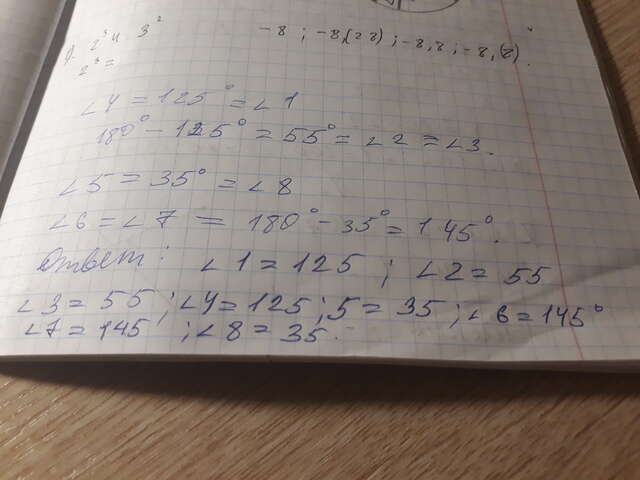 2³ и 3²
2³ =
-8 ; -8,(28) ; -8,8 ; -8,(8).
∠4 = 125° = ∠1
180° - 125° = 55° = ∠2 = ∠3.
∠5 = 35° = ∠8
∠6 = ∠7 = 180° - 35° = 145°.
Ответ: ∠1 = 125 ; ∠2 = 55
∠3 = 55 ; ∠4 = 125 ; 5 = 35 ; ∠6 = 145°
∠7 = 145 ; ∠8 = 35.